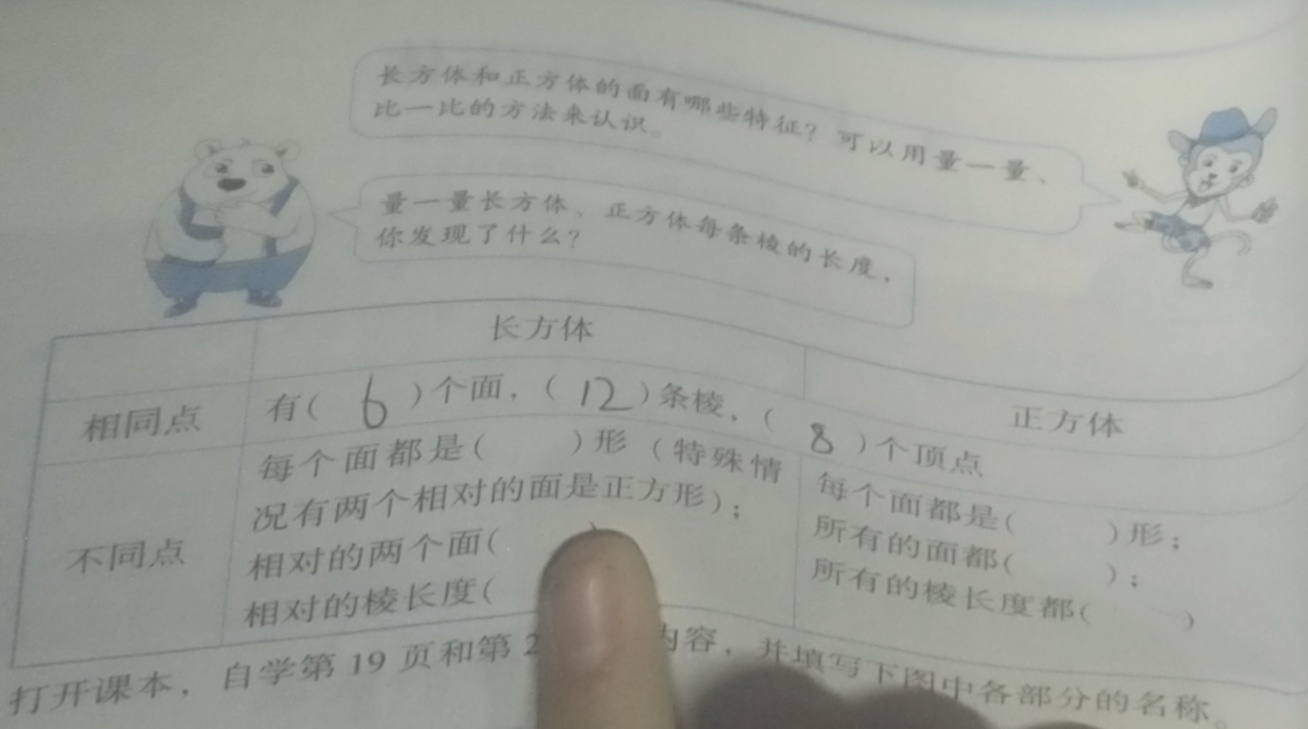 长方体和正方体的面有哪些特征？可以用量一量、
比一比的方法来认识。
量一量长方体、正方体每条棱的长度，
你发现了什么？
长方体
正方体
相同点
有( 6 )个面，( 12 )条棱，( 8 )个顶点
不同点
每个面都是(　　)形（特殊情
况有两个相对的面是正方形）；
相对的两个面(　　)
相对的棱长度(
每个面都是(　　)形；
所有的面都(　　)；
所有的棱长度都(　　)
打开课本，自学第 19 页和第 2 内容，并填写下图中各部分的名称。